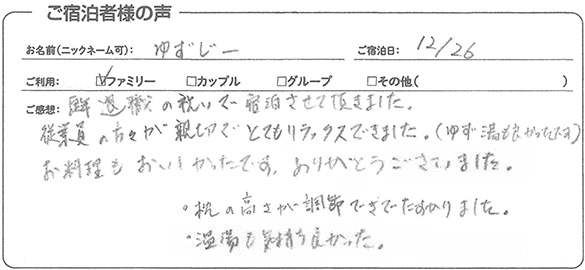 ご宿泊者様の声
お名前(ニックネーム可): ゆずじー ご宿泊日: 12/26
ご利用: ☑ファミリー □カップル □グループ □その他( )
ご感想: 退職の祝いで宿泊させて頂きました。
従業員の方々が親切でとてもリラックスできました。(ゆず湯も良かったです)
お料理もおいしかったです。ありがとうございました。
・枕の高さが調節できてたすかりました。
・温湯も気持ち良かった。